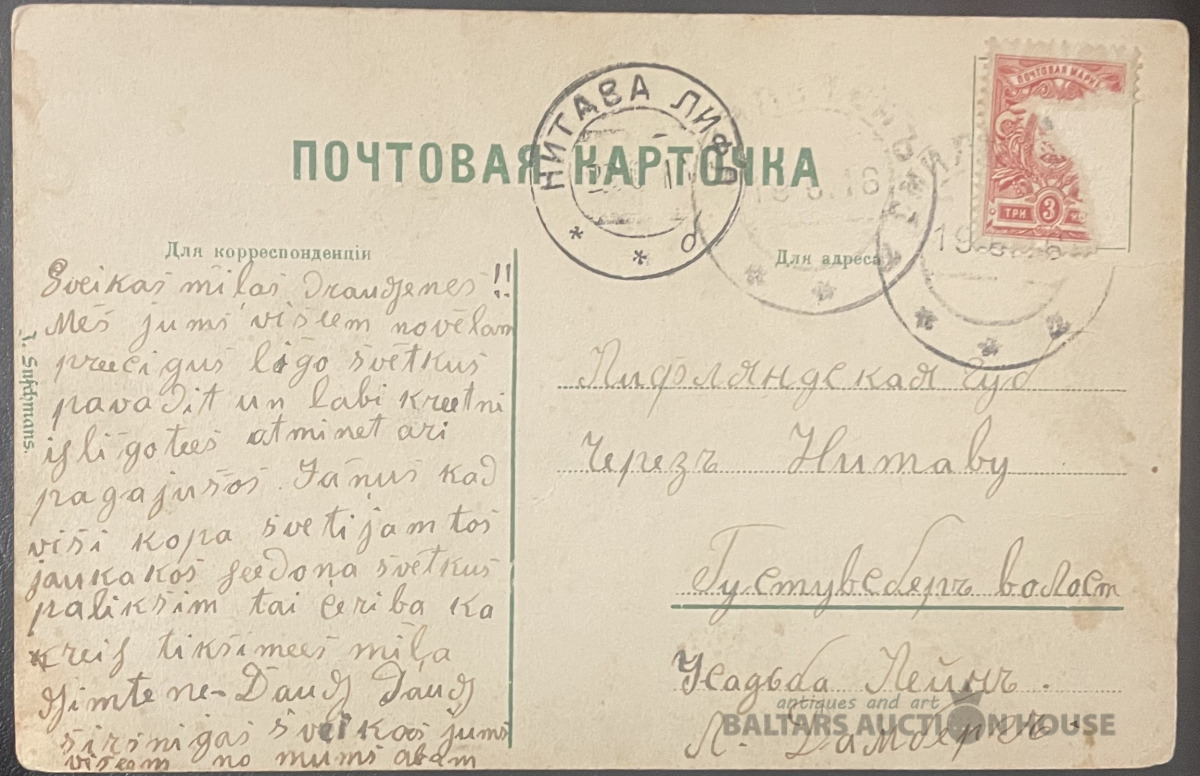 ПОЧТОВАЯ КАРТОЧКА
НИТАВА ЛИФЛ
б
ПОЧТОВАЯ МАРКА
ТРИ 3
19.6.16
19.6.16
Для корреспонденціи
Для адреса
Sveikas miļas draudzenes!!
Mēs jums visēem novēlam
preecigus līgo svētkus
pavadit un labi kreetni
isligotees atminet ari
pagajušos Jāņus kad
visi kopa svetijam tos
jaukakos seedoņa svetkus
paliksim tai ceriba ka
kreis tiksimees miļa
dzimtene- Daudz Daudz
sirsnigas sveikas jums
viseem no mums abam
Лифляндская губ
Черезъ Нитаву
Густувсбергъ волост
Усадьба Лейнъ.
Л. Дамбергъ
antiques and art
BALTARS AUCTION HOUSE